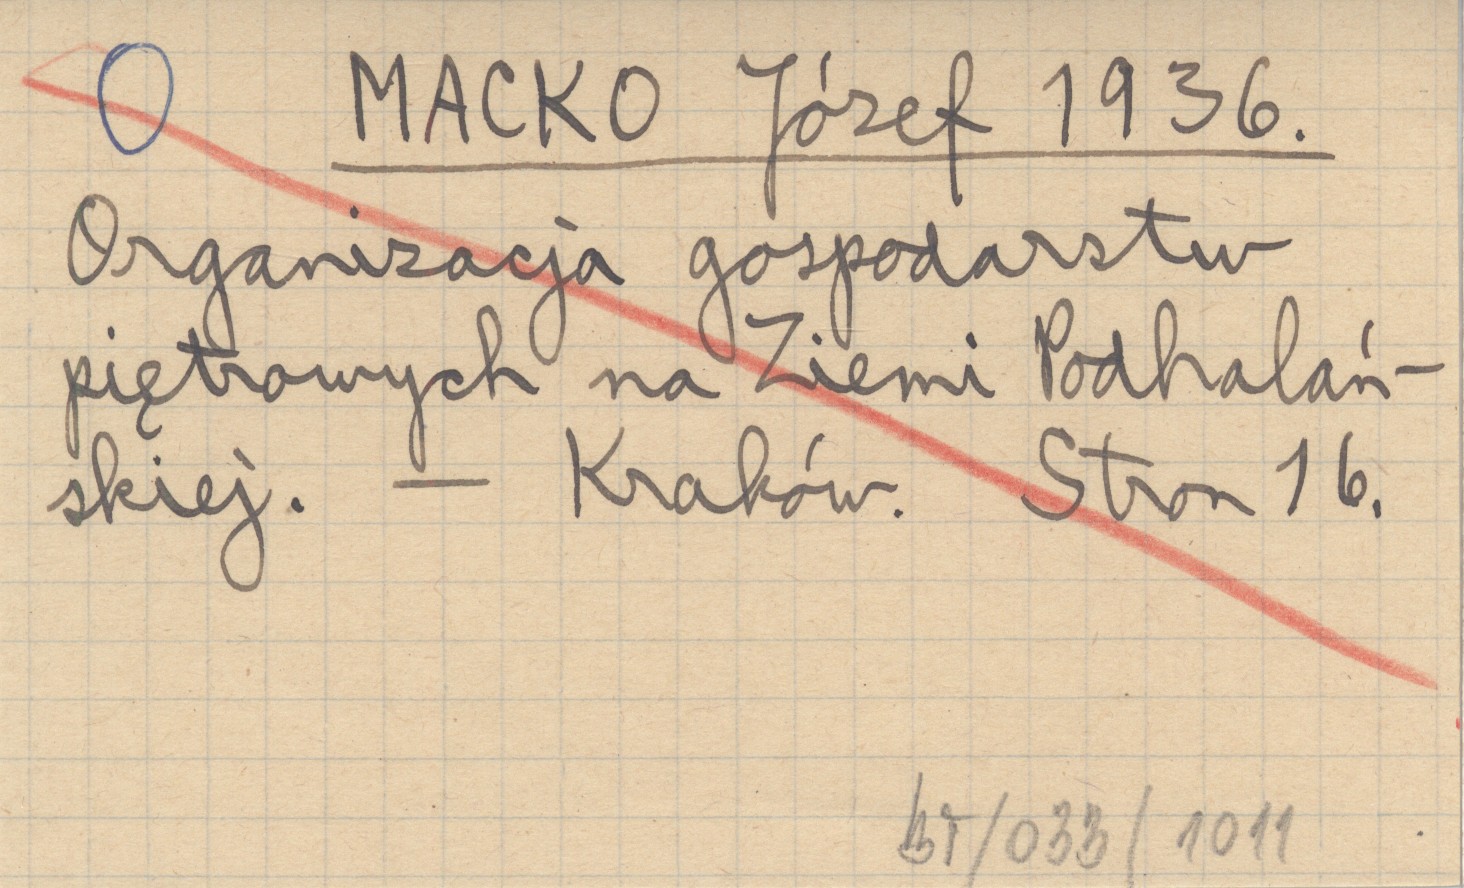 O MACKO Józef 1936.
Organizacja gospodarstw
piętrowych na Ziemi Podhalań-
skiej. — Kraków. Stron 16.
BT/033/1011